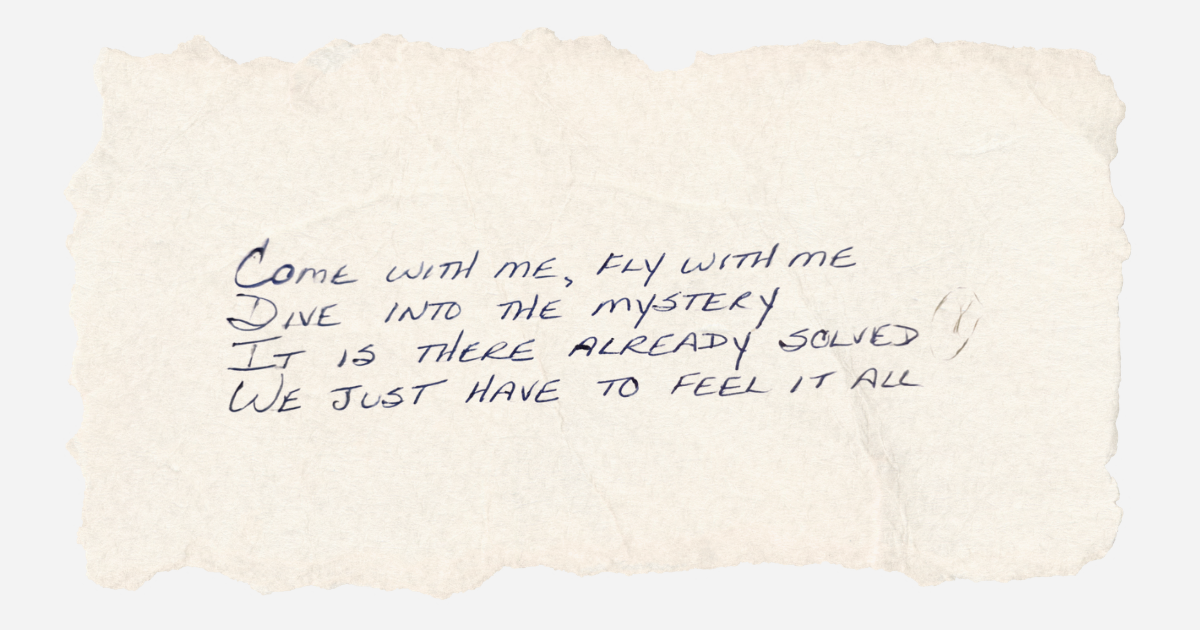 Come with me, fly with me
Dive into the mystery
It is there already solved
We just have to feel it all